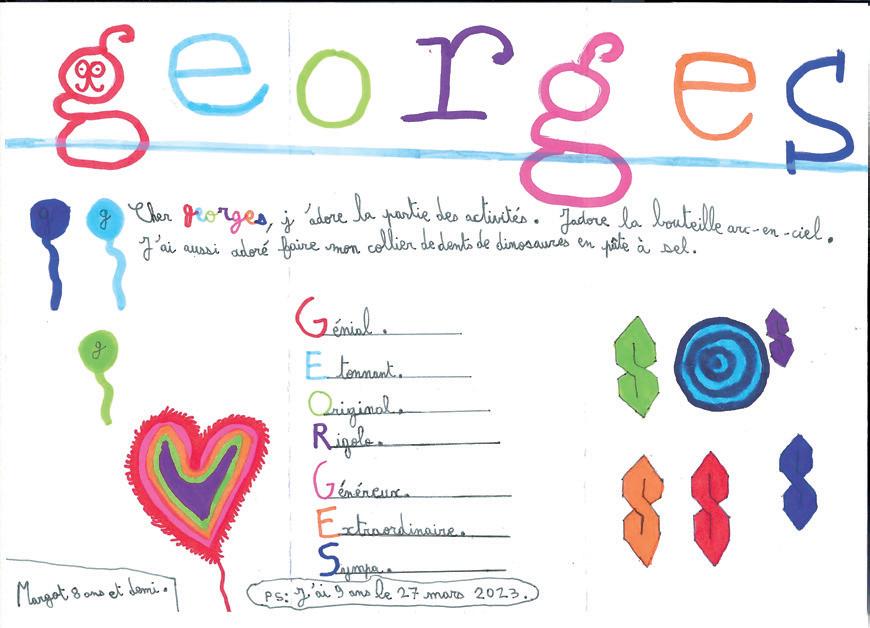 georges
g g
Cher georges, j'adore la partie des activités. J'adore la bouteille arc-en-ciel.
J'ai aussi adoré faire mon collier de dents de dinosaures en pâte à sel.
g
Génial.
Etonnant.
Original.
Rigolo.
Généreux.
Extraordinaire.
Sympa.
Margot 8 ans et demi.
PS: J'ai 9 ans le 27 mars 2023.